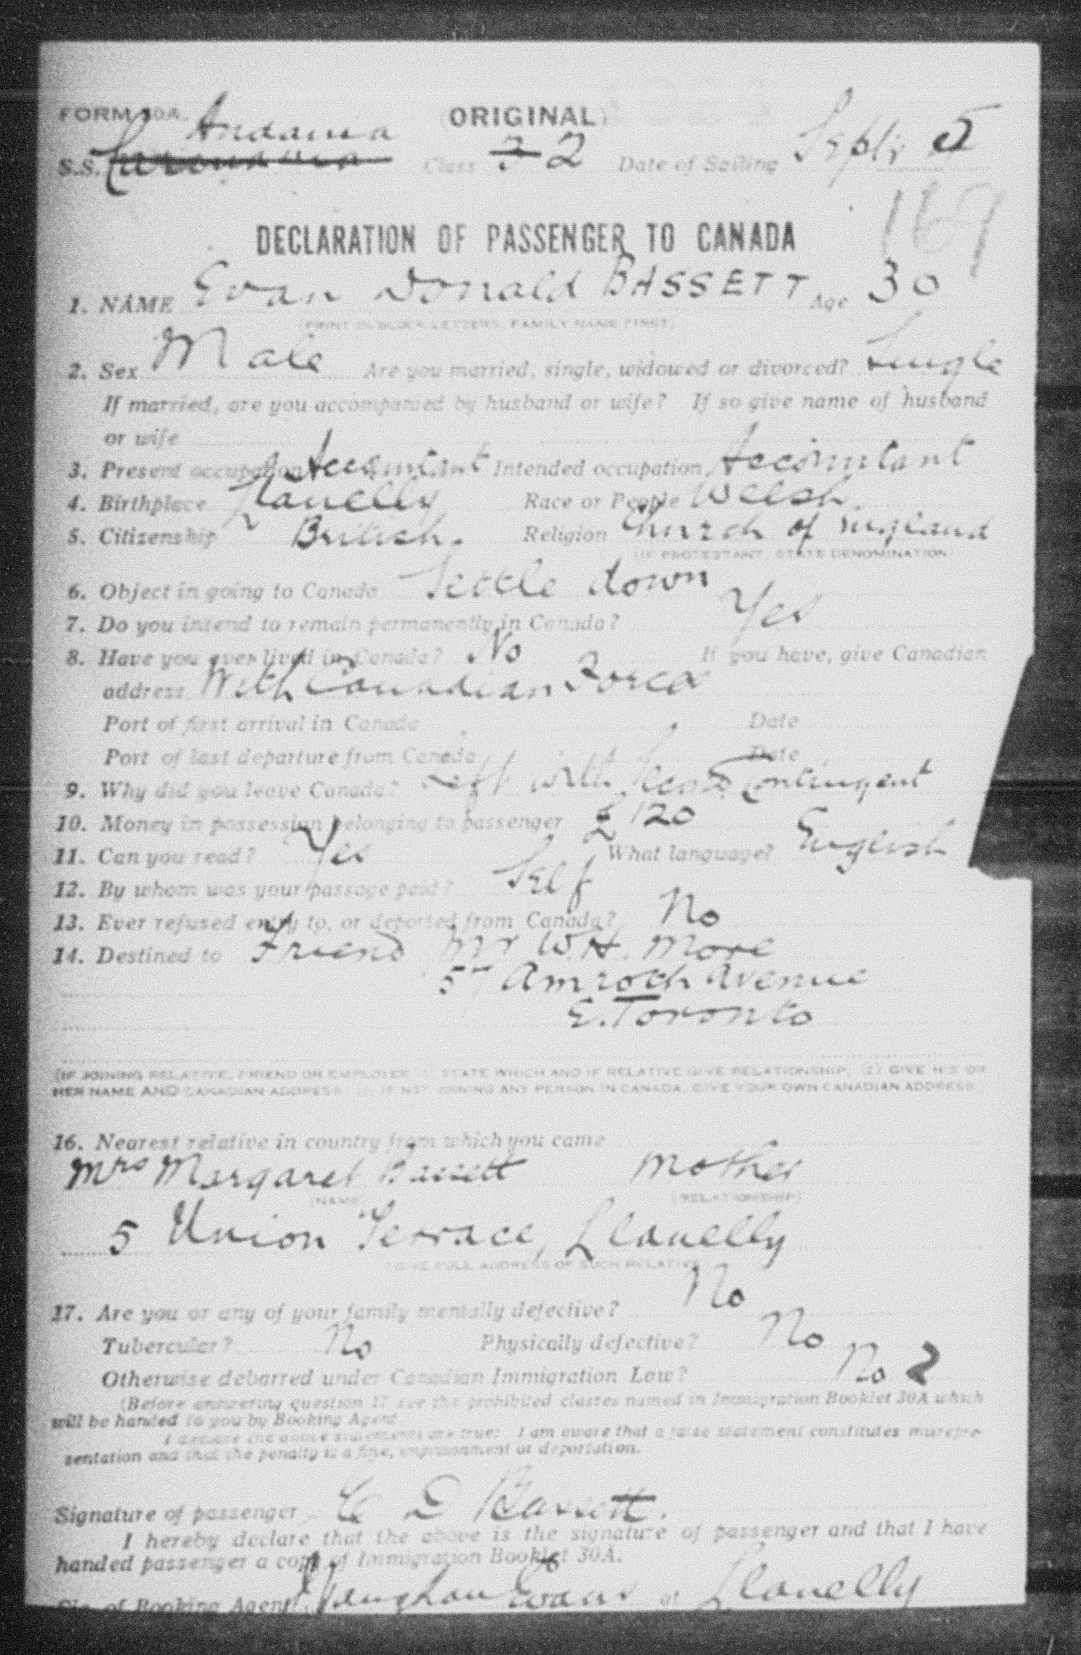 FORM 30A. ORIGINAL
Andania
S.S. Caronia Class 3 2 Date of Sailing Septr 5
169
DECLARATION OF PASSENGER TO CANADA
1. NAME Evan Donald BASSETT Age 30
(PRINT IN BLOCK LETTERS, FAMILY NAME FIRST)
2. Sex Male Are you married, single, widowed or divorced? Single
If married, are you accompanied by husband or wife? If so give name of husband
or wife
3. Present occupation Accountant Intended occupation Accountant
4. Birthplace Llanelly Race or People Welsh.
5. Citizenship British. Religion Church of England
(IF PROTESTANT, STATE DENOMINATION)
6. Object in going to Canada Settle down
7. Do you intend to remain permanently in Canada? Yes
8. Have you ever lived in Canada? No If you have, give Canadian
address With Canadian Force
Port of first arrival in Canada Date
Port of last departure from Canada Date
9. Why did you leave Canada? Left with Second Contingent
10. Money in possession belonging to passenger £120
11. Can you read? Yes What language? English
12. By whom was your passage paid? Self
13. Ever refused entry to, or deported from Canada? No
14. Destined to Friend Mr W.H. More
57 Amroth Avenue
E. Toronto
(IF JOINING RELATIVE, FRIEND OR EMPLOYER (1) STATE WHICH AND IF RELATIVE GIVE RELATIONSHIP; (2) GIVE HIS OR
HER NAME AND CANADIAN ADDRESS. (3) IF NOT JOINING ANY PERSON IN CANADA, GIVE YOUR OWN CANADIAN ADDRESS)
16. Nearest relative in country from which you came
Mrs Margaret Bassett Mother
(NAME) (RELATIONSHIP)
5 Union Terrace, Llanelly
(GIVE FULL ADDRESS OF SUCH RELATIVE)
17. Are you or any of your family mentally defective? No
Tubercular? No Physically defective? No
Otherwise debarred under Canadian Immigration Law? No 2
(Before answering question 17 see the prohibited classes named in Immigration Booklet 30A which
will be handed to you by Booking Agent.
I declare the above statements are true: I am aware that a false statement constitutes misrepre-
sentation and that the penalty is a fine, imprisonment or deportation.
Signature of passenger E D Bassett.
I hereby declare that the above is the signature of passenger and that I have
handed passenger a copy of Immigration Booklet 30A.
Sig. of Booking Agent Vaughan Evans at Llanelly